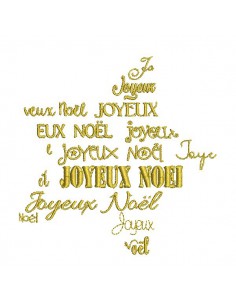 Jo
Joyeux
veux Noël JOYEUX
EUX NOËL joyeux
e JOYEUX NOËL Joye
et JOYEUX NOEl
Joyeux Noël
Noël
Joyeux
Noël